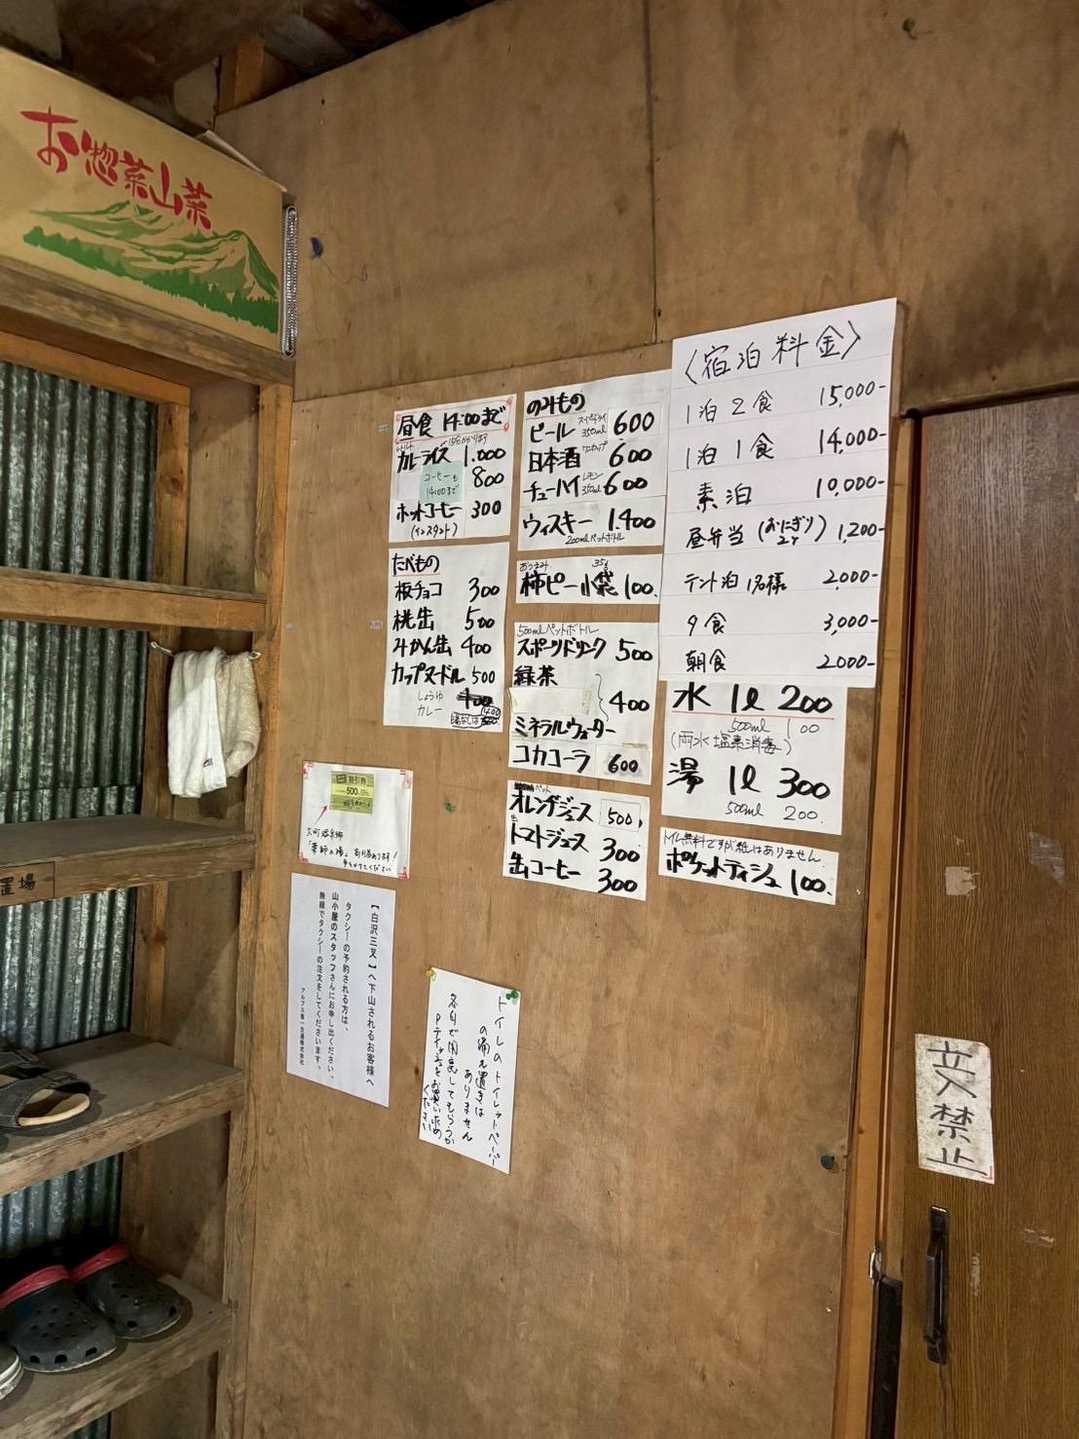 お惣菜山菜
置場
昼食 14:00まで
カレーライス 1,000
コーヒーも
14:00まで
800
ホットコーヒー 300
(インスタント)
たべもの
板チョコ 300
桃缶 500
みかん缶 400
カップヌードル 500
しょうゆ
カレー
のみもの
ビール スーパードライ 350ml 600
日本酒 ワンカップ 600
チューハイ レモン 350ml 600
ウィスキー 1,400
200mlペットボトル
おつまみ 35g
柿ピー小袋 100.
500mlペットボトル
スポーツドリンク 500
緑茶
400
ミネラルウォーター
コカコーラ 600
ペット
オレンジジュース 500
缶
トマトジュース 300
缶コーヒー 300
〈宿泊料金〉
1泊2食 15,000-
1泊1食 14,000-
素泊 10,000-
昼弁当(おにぎり2ケ) 1,200-
テント泊1名様 2,000-
夕食 3,000-
朝食 2,000-
水 1ℓ 200
500ml 100
(雨水 塩素消毒)
湯 1ℓ 300
500ml 200.
トイレ無料ですが紙はありません.
ポケットティシュ 100.
割引券
500
大町温泉郷
「薬師の湯」割引券あります!
【白沢三叉】へ下山されるお客様へ
タクシーの予約される方は、
山小屋のスタッフさんにお申し出ください。
無線でタクシーの注文をしてくださいます。
アルプス第一交通株式会社
トイレのトイレットペーパー
の備え置きは
ありません
各自で用意してもらうか
Pティッシュをお買い求め
ください
立入禁止